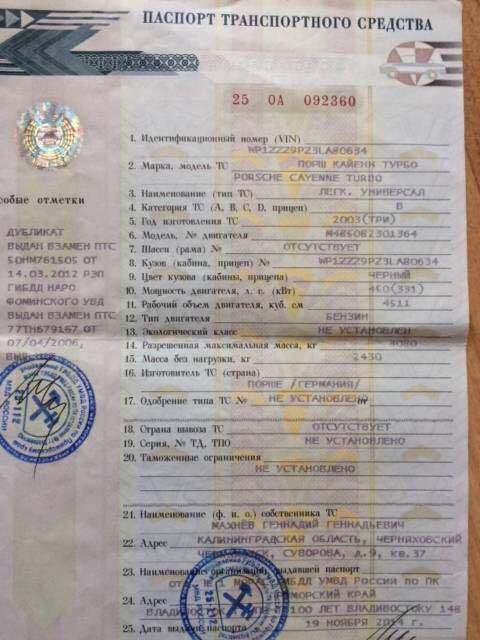 ПАСПОРТ ТРАНСПОРТНОГО СРЕДСТВА
25 ОА 092360
1. Идентификационный номер (VIN) WP1ZZZ9PZ3LA80634
2. Марка, модель ТС ПОРШ КАЙЕНН ТУРБО
PORSCHE CAYENNE TURBO
3. Наименование (тип ТС) ЛЕГК. УНИВЕРСАЛ
4. Категория ТС (А, В, С, D, прицеп) В
5. Год изготовления ТС 2003(ТРИ)
6. Модель, № двигателя M485082301364
7. Шасси (рама) № ОТСУТСТВУЕТ
8. Кузов (кабина, прицеп) № WP1ZZZ9PZ3LA80634
9. Цвет кузова (кабины, прицепа) ЧЕРНЫЙ
10. Мощность двигателя, л. с. (кВт) 450(331)
11. Рабочий объем двигателя, куб. см 4511
12. Тип двигателя БЕНЗИН
13. Экологический класс НЕ УСТАНОВЛЕН
14. Разрешенная максимальная масса, кг 3080
15. Масса без нагрузки, кг 2430
16. Изготовитель ТС (страна)
ПОРШЕ /ГЕРМАНИЯ/
17. Одобрение типа ТС № НЕ УСТАНОВЛЕНО от
18. Страна вывоза ТС ОТСУТСТВУЕТ
19. Серия, № ТД, ТПО НЕ УСТАНОВЛЕНО
20. Таможенные ограничения
НЕ УСТАНОВЛЕНО
21. Наименование (ф. и. о.) собственника ТС
МАХНЕВ ГЕННАДИЙ ГЕННАДЬЕВИЧ
22. Адрес КАЛИНИНГРАДСКАЯ ОБЛАСТЬ, ЧЕРНЯХОВСКИЙ
СУВОРОВА, д.9, кв.37
23. Наименование организации, выдавшей паспорт
ГИБДД УМВД РОССИИ ПО ПК
24. Адрес КРАЙ
100 ЛЕТ ВЛАДИВОСТОКУ 148
25. Дата выдачи паспорта 19 НОЯБРЯ 2014 г.
собые отметки
ДУБЛИКАТ
ВЫДАН ВЗАМЕН ПТС
50НМ761505 ОТ
14.03.2012 РЭП
ГИБДД НАРО
ФОМИНСКОГО УВД
ВЫДАН ВЗАМЕН ПТС
77ТН679167 ОТ
07/04/2006,